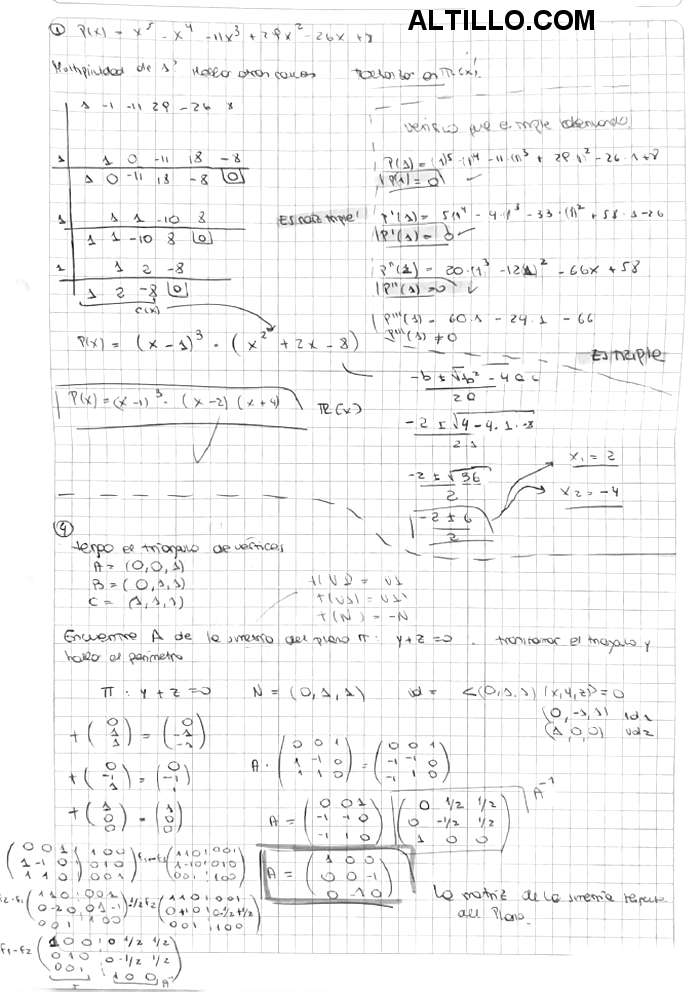 ALTILLO.COM
① P(x) = x⁵ - x⁴ - 11x³ + 29x² - 26x + 8
Multiplicidad de 1' Hallo otras raíces factorizo en ℝ(x)!
1 -1 -11 29 -26 8
1 1 0 -11 18 -8
1 0 -11 18 -8 0
1 1 1 -10 8
1 1 -10 8 0
1 1 2 -8
1 2 -8 0
C(x)
Es raíz triple!
P(x) = (x-1)³ · (x² + 2x - 8)
P(x) = (x-1)³ · (x-2) (x+4) ℝ(x)
Verifico que es triple derivando!
P(1) = (1)⁵ - (1)⁴ - 11·(1)³ + 29(1)² - 26·1 + 8
P(1) = 0
P'(1) = 5(1)⁴ - 4·(1)³ - 33·(1)² + 58·1 - 26
P'(1) = 0
P''(1) = 20·(1)³ - 12(1)² - 66x + 58
P''(1) = 0
P'''(1) = 60·1 - 24·1 - 66
P'''(1) ≠ 0
Es triple
-b ± √b² - 4ac
2a
-2 ± √4 - 4·1·-8
2·1
-2 ± √36
2
-2 ± 6
2
x₁ = 2
x₂ = -4
④
tengo el triángulo de vértices
A = (0,0,1)
B = (0,1,1)
C = (1,1,1)
t(N) = -N
Encuentre A de la simetría del plano π: y+z=0 . transformar el triángulo y
hallo el perímetro
π: y+z=0 N = (0,1,1) vd = <(0,1,1)(x,y,z)>=0
(0,-1,1) vd1
(1,0,0) vd2
t(0 1 1) = (0 -1 -1)
t(0 -1 1) = (0 -1 1)
t(1 0 0) = (1 0 0)
A · (0 0 1
1 -1 0
1 1 0) = (0 0 1
-1 -1 0
-1 1 0)
A = (0 0 1
-1 -1 0
-1 1 0) (0 1/2 1/2
0 -1/2 1/2
1 0 0) A⁻¹
A = (1 0 0
0 0 -1
0 -1 0)
La matriz de la simetría respecto
del Plano.
(0 0 1
1 -1 0
1 1 0) (1 0 0
0 1 0
0 0 1) F1-F3 (1 1 0 0 0 1
1 -1 0 0 1 0
0 0 1 1 0 0)
F2-F1 (1 1 0 0 0 1
0 -2 0 0 1 -1
0 0 1 1 0 0) -1/2 F2 (1 1 0 0 0 1
0 1 0 0 -1/2 +1/2
0 0 1 1 0 0)
F1-F2 (1 0 0 0 1/2 1/2
0 1 0 0 -1/2 1/2
0 0 1 1 0 0)
I A⁻¹